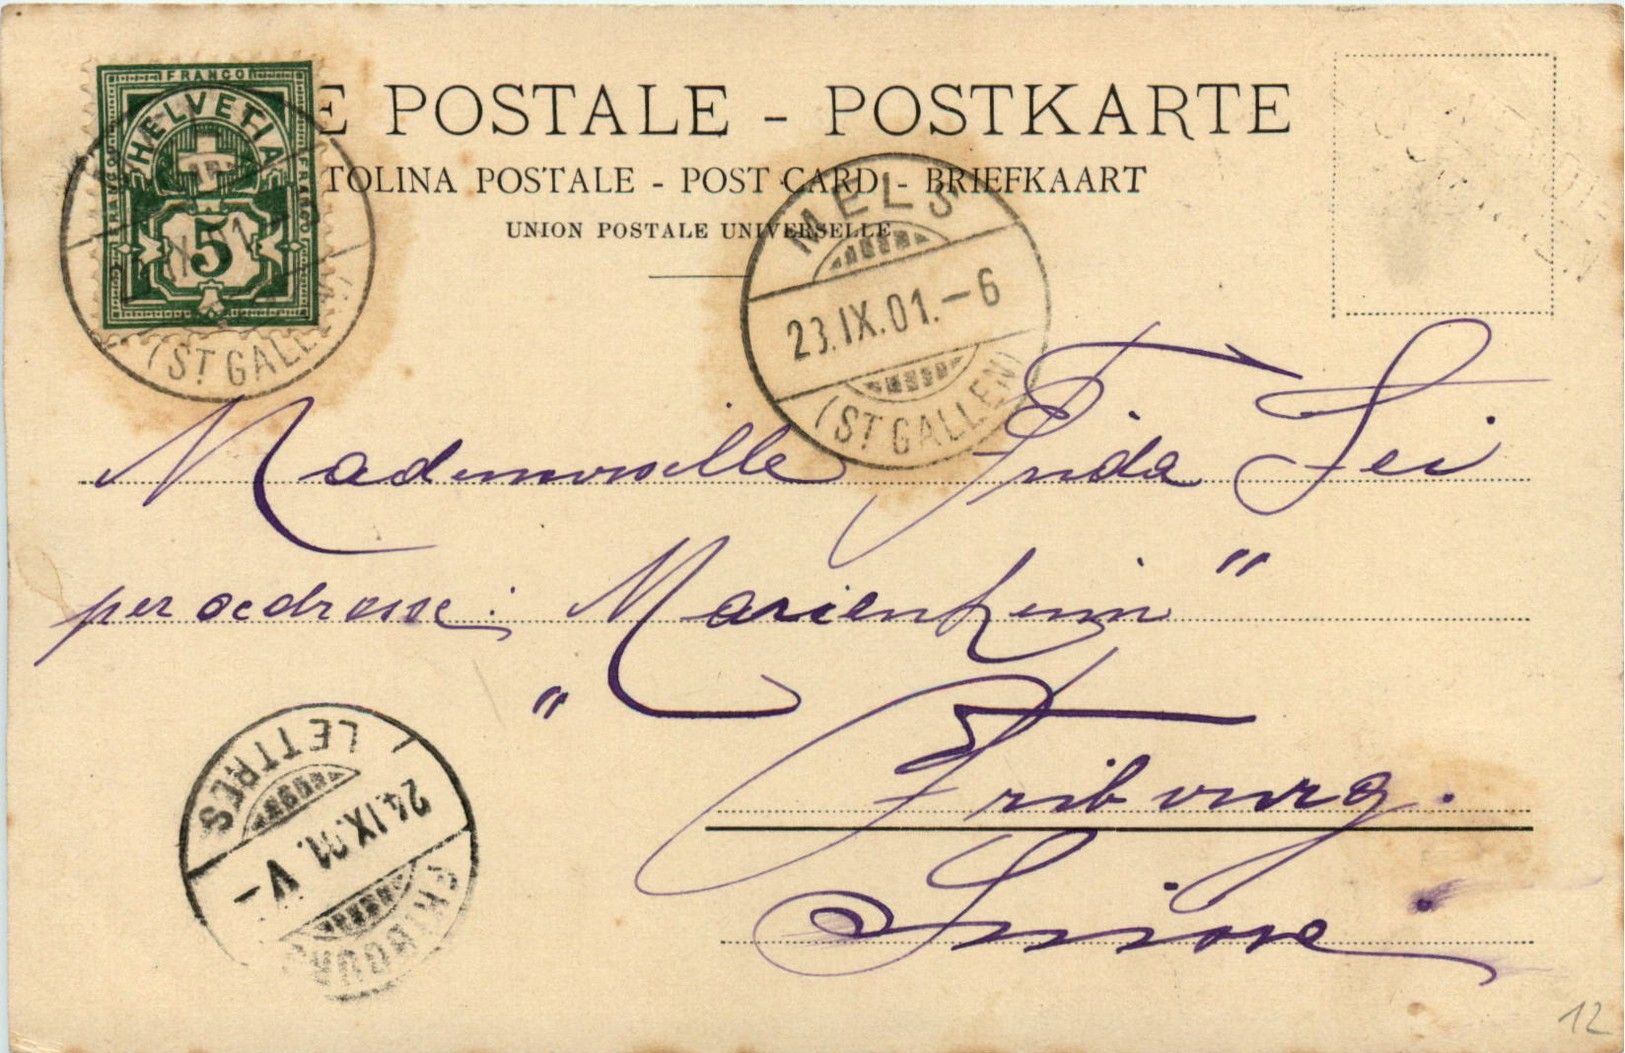 FRANCO
HELVETIA
FRANCO
FRANCO
5
(ST. GALLEN)
E POSTALE - POSTKARTE
TOLINA POSTALE - POST CARD - BRIEFKAART
UNION POSTALE UNIVERSELLE
MELS
23.IX.01.-6
(ST. GALLEN)
Mademoiselle Frida
per adresse: "Marienheim"
Fribourg.
Suisse
LETTRES
24.IX.01. V-
FRIBOURG
12